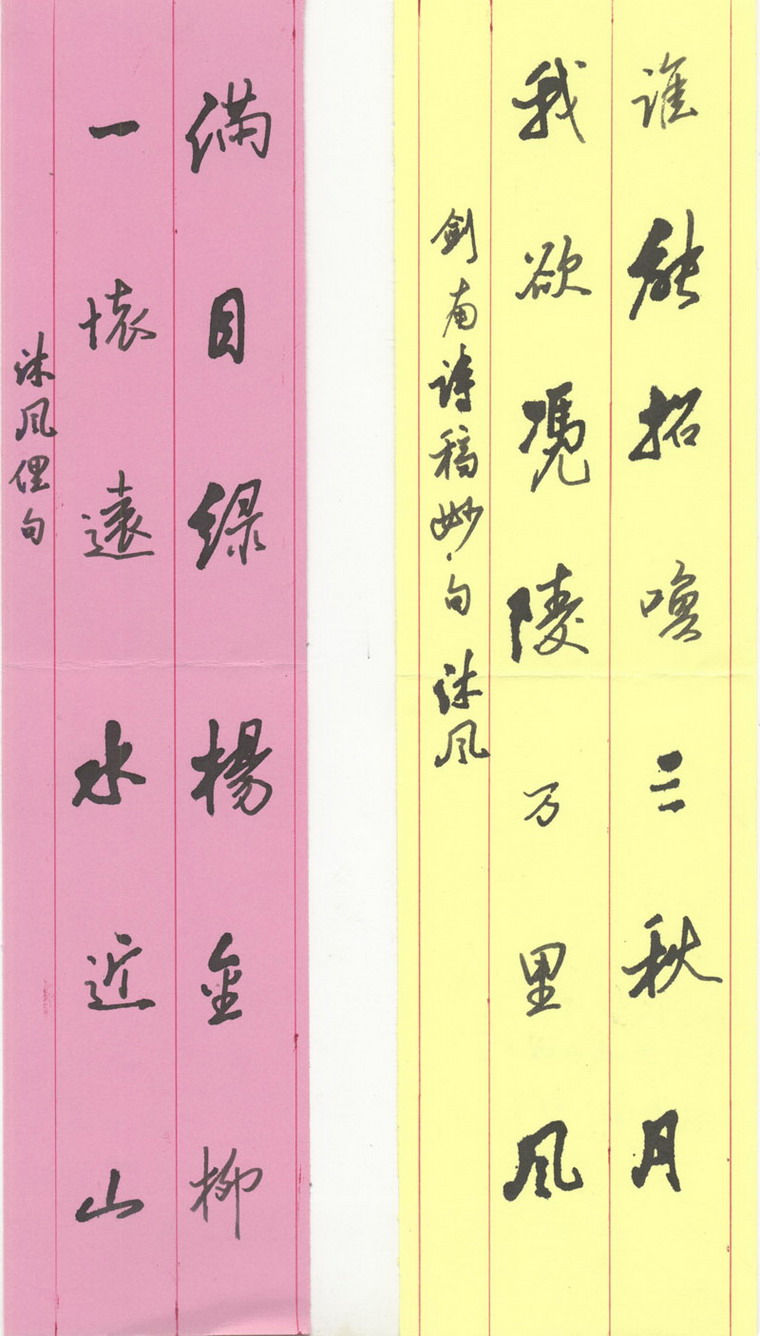 谁能招唤三秋月
我欲凭陵万里风
剑南诗稿妙句 沐风
满目绿杨金柳
一怀远水近山
沐风俚句